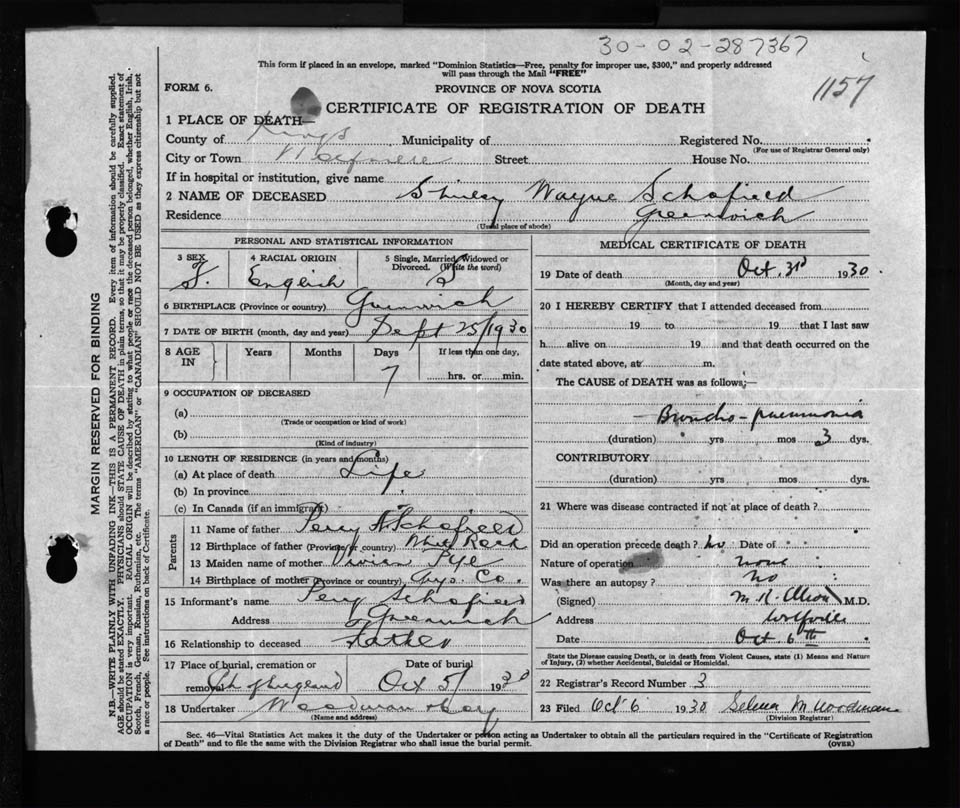 30-02-287367
This form if placed in an envelope, marked "Dominion Statistics—Free, penalty for improper use, $300," and properly addressed
will pass through the Mail "FREE"
FORM 6.
PROVINCE OF NOVA SCOTIA
1157
CERTIFICATE OF REGISTRATION OF DEATH
1 PLACE OF DEATH
County of Kings Municipality of Registered No.
(For use of Registrar General only)
City or Town Street House No.
If in hospital or institution, give name
2 NAME OF DECEASED Shirley Wayne Schofield
Residence Greenwich
(Usual place of abode)
PERSONAL AND STATISTICAL INFORMATION
3 SEX 4 RACIAL ORIGIN 5 Single, Married, Widowed or
Divorced. (Write the word)
F. English S
6 BIRTHPLACE (Province or country) Greenwich
7 DATE OF BIRTH (month, day and year) Sept 25/1930
8 AGE IN Years Months Days If less than one day,
7 hrs. or min.
9 OCCUPATION OF DECEASED
(a)
(Trade or occupation or kind of work)
(b)
(Kind of industry)
10 LENGTH OF RESIDENCE (in years and months)
(a) At place of death Life
(b) In province
(c) In Canada (if an immigrant)
Parents
11 Name of father Percy A. Schofield
12 Birthplace of father (Province or country) White Rock
13 Maiden name of mother Vivian Pye
14 Birthplace of mother (Province or country) Guys. Co.
15 Informant's name Percy Schofield
Address Greenwich
16 Relationship to deceased Father
17 Place of burial, cremation or Date of burial
removal Ch of England Oct 5/ 1930
18 Undertaker Woodman
(Name and address)
MEDICAL CERTIFICATE OF DEATH
19 Date of death Oct. 3rd 1930
(Month, day and year)
20 I HEREBY CERTIFY that I attended deceased from
19 to 19 that I last saw
h alive on 19 and that death occurred on the
date stated above, at m.
The CAUSE of DEATH was as follows;—
Broncho-pneumonia
(duration) yrs mos 3 dys.
CONTRIBUTORY
(duration) yrs. mos dys.
21 Where was disease contracted if not at place of death?
Did an operation precede death? no Date of
Nature of operation none
Was there an autopsy? No
(Signed) M.R. M.D.
Address Wolfville
Date Oct 6th
State the Disease causing Death, or in death from Violent Causes, state (1) Means and Nature
of Injury, (2) whether Accidental, Suicidal or Homicidal.
22 Registrar's Record Number 3
23 Filed Oct 6 1930 Selina M Woodman
(Division Registrar)
Sec. 46—Vital Statistics Act makes it the duty of the Undertaker or person acting as Undertaker to obtain all the particulars required in the "Certificate of Registration
of Death" and to file the same with the Division Registrar who shall issue the burial permit.
(OVER)
MARGIN RESERVED FOR BINDING
N.B.—WRITE PLAINLY WITH UNFADING INK—THIS IS A PERMANENT RECORD. Every item of information should be carefully supplied.
AGE should be stated EXACTLY. PHYSICIANS should STATE CAUSE OF DEATH in plain terms, so that it may be properly classified. Exact statement of
OCCUPATION is very important. RACIAL ORIGIN will be described by stating to what people or race the deceased person belonged, whether English, Irish,
Scotch, French, German, Russian, Ruthenian, etc. The terms "AMERICAN" or "CANADIAN" SHOULD NOT BE USED as they express citizenship but not
a race or people. See instructions on back of Certificate.